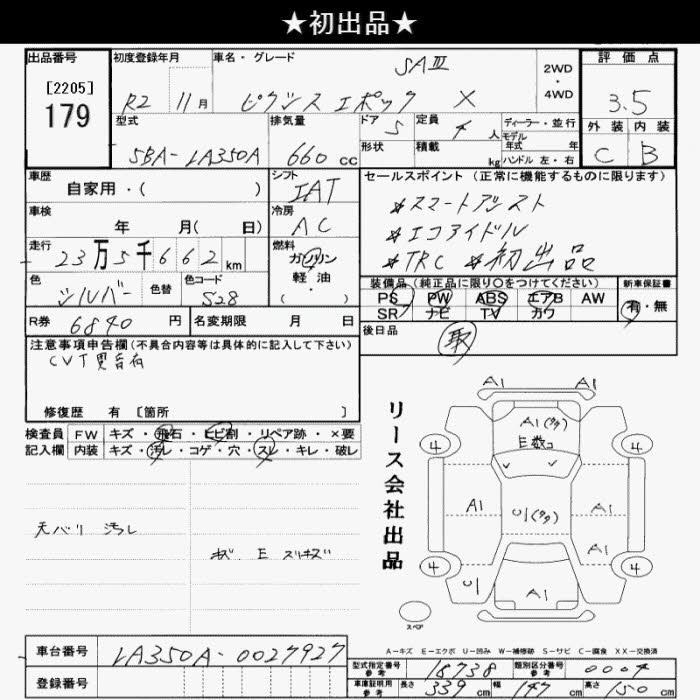 ★初出品★
出品番号
[2205]
179
初度登録年月
R2 11月
車名・グレード
SAⅢ
ピクシス エポック X
2WD
・
4WD
評価点
3.5
外装 内装
C B
型式
5BA-LA350A
排気量
660 cc
ドア 5
形状
定員
4 人
積載
kg
ディーラー・並行
モデル
年式 年
ハンドル 左・右
車歴
自家用・( )
シフト
IAT
セールスポイント (正常に機能するものに限ります)
☆スマートアシスト
☆エコアイドル
☆TRC ☆初出品
車検
年 月( 日)
冷房
AC
走行
23万5千662km
燃料
ガソリン
軽油
・
( )
色
シルバー
色替
色コード
S28
装備品(純正品に限り○をつけてください)
PS PW ABS エアB AW
SR ナビ TV カワ
新車保証書
有・無
R券
6840 円
名変期限 月 日
後日品
取
注意事項申告欄(不具合内容等は具体的に記入して下さい)
CVT異音有
修復歴 有 [箇所 ]
検査員
記入欄
FW キズ・飛石・ヒビ割・リペア跡・×要
内装 キズ・汚レ・コゲ・穴・スレ・キレ・破レ
天バリ 汚レ
キズ E スリキズ
リース会社出品
A1 A1
A1(タタ)
E数コ
4 4
A1 U1(タタ) A1
A1
4 4
U1 A1
スペア
A-キズ E-エクボ U-凹み W-補修跡 S-サビ C-腐食 XX-交換済
車台番号
LA350A-0027927
登録番号
型式指定番号
参考
18738
類別区分番号
参考
0004
車庫証明用
参考
長さ 339 cm 幅 147 cm 高さ 150 cm